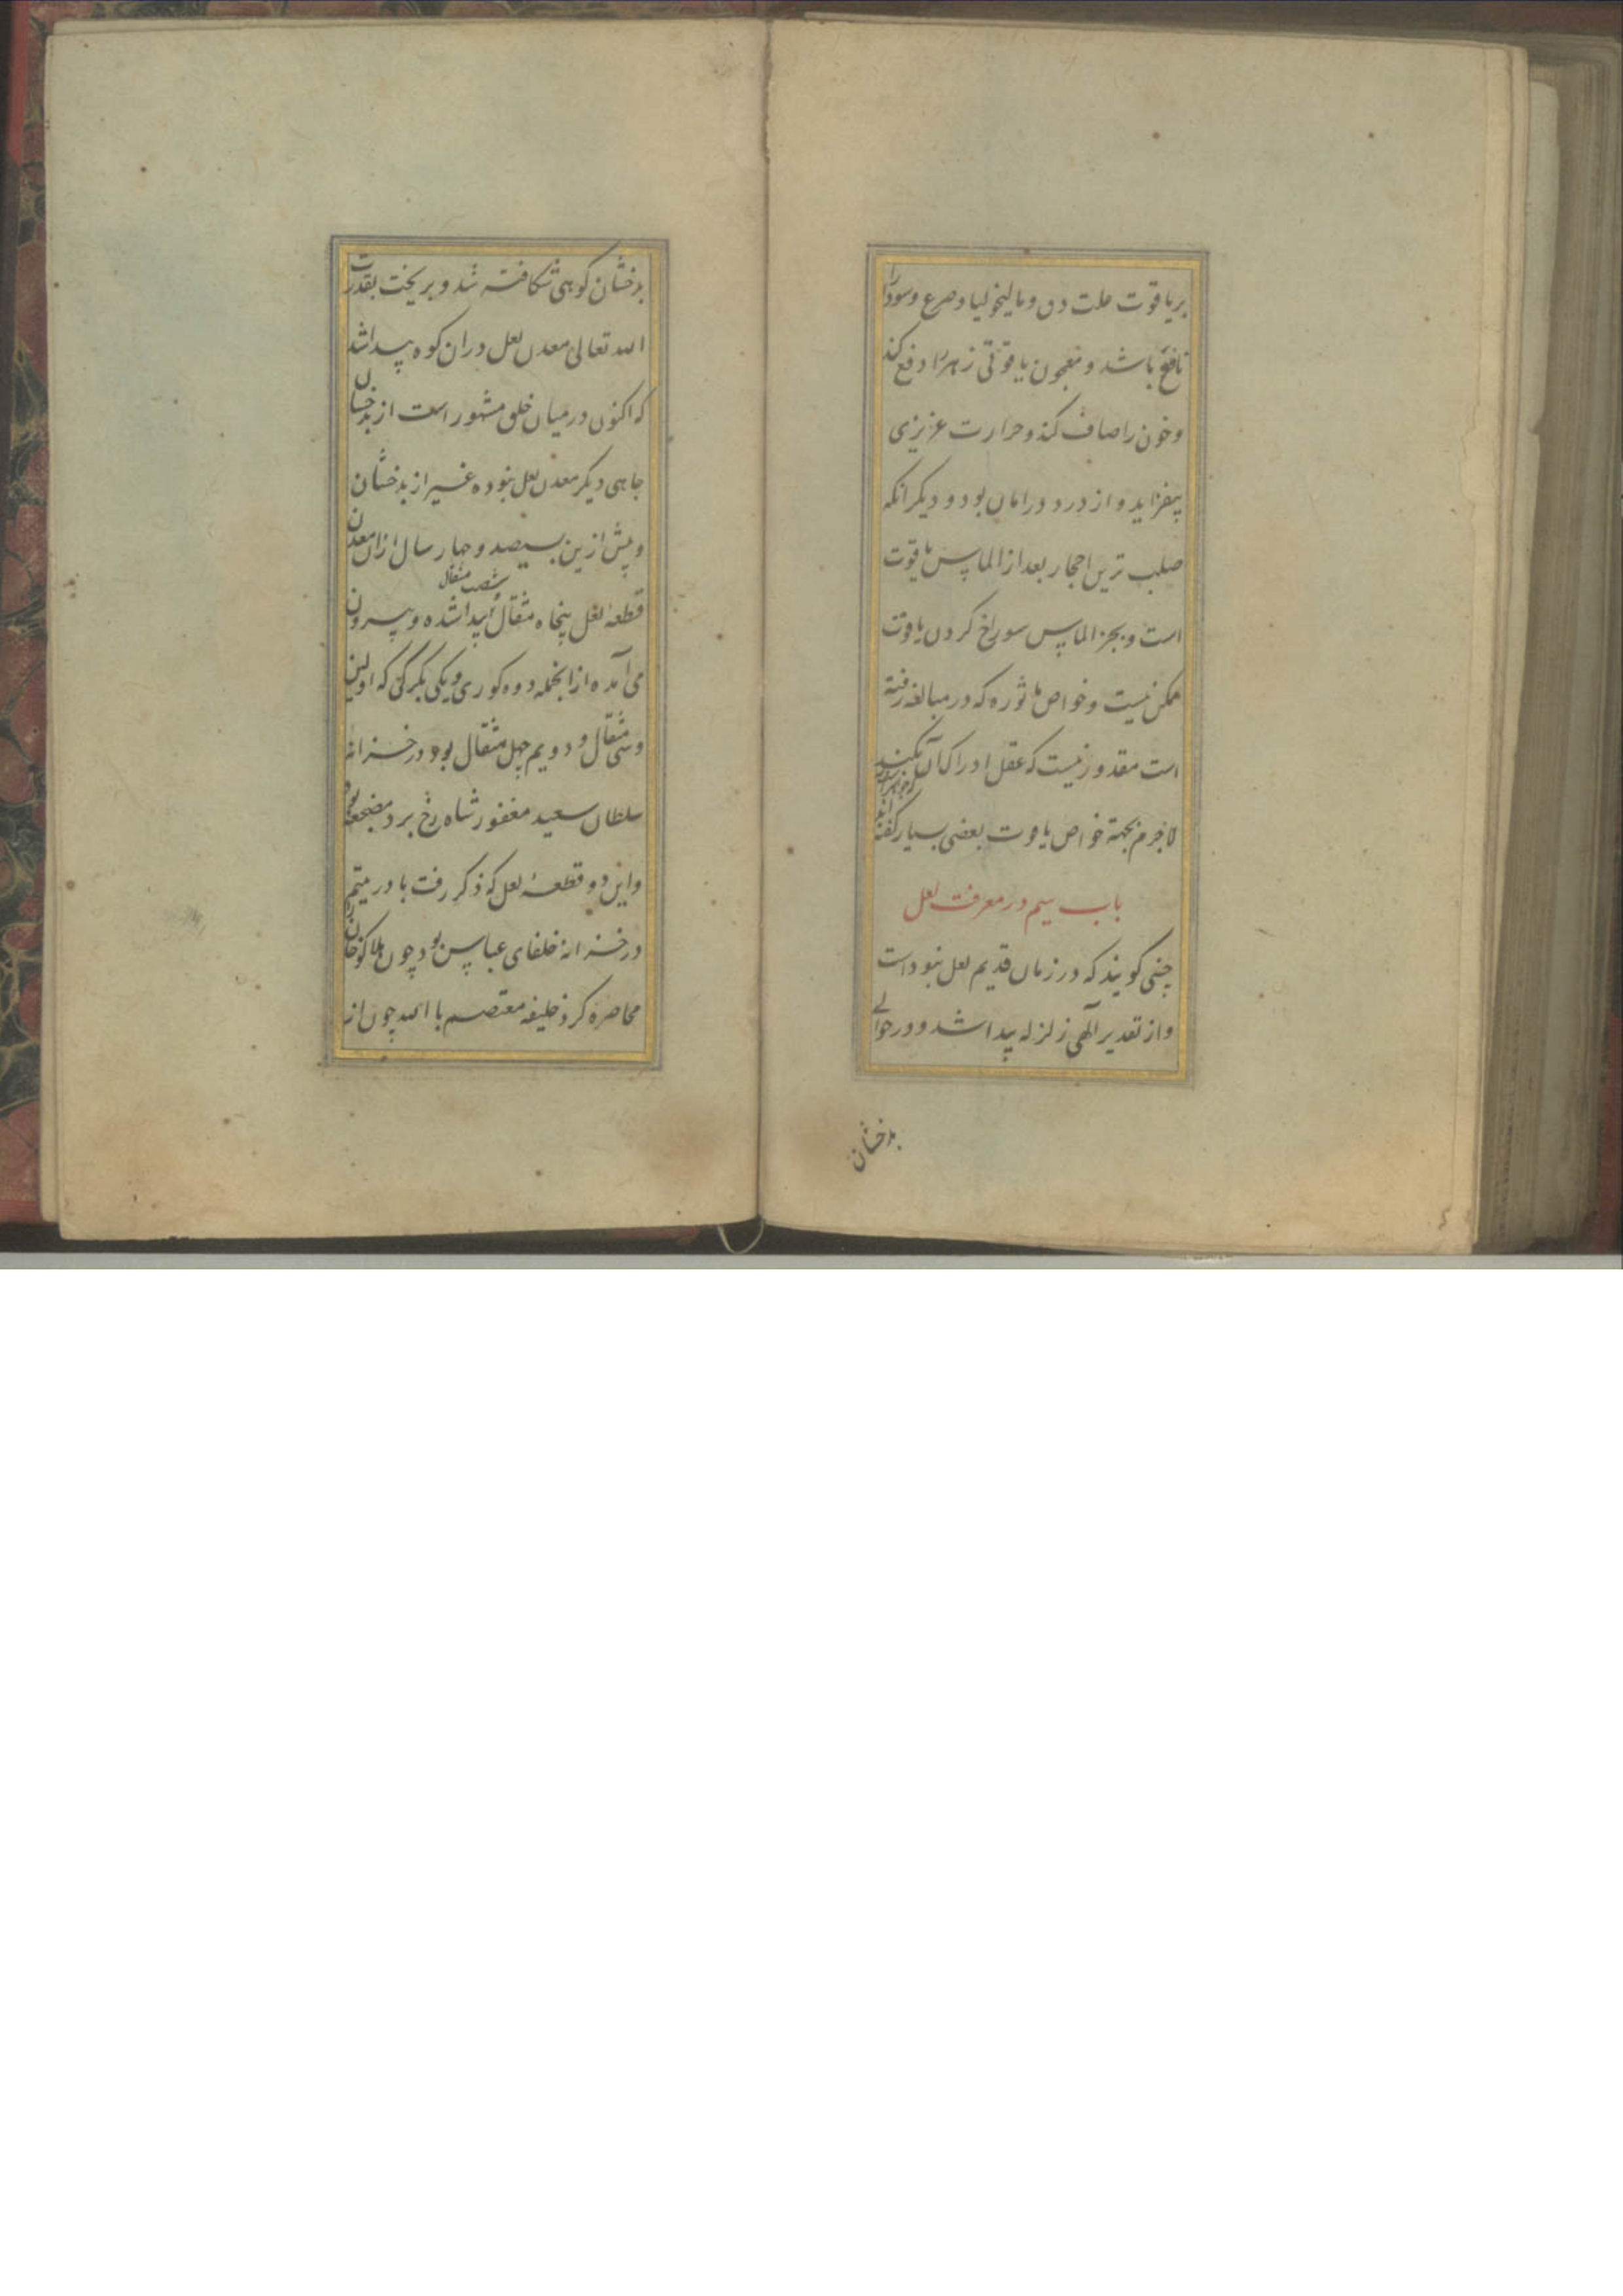 بریاقوت علت دق و مالیخولیا و صرع و سودا را
نافع باشد و معجون یاقوتی زهر را دفع کند
و خون را صاف کند و حرارت عزیزی
بیفزاید و از درد در امان بود و دیگر انکه
صلب ترین احجار بعد از الماس یاقوت
است و بجز الماس سوراخ کردن یاقوت
ممکن نیست و خواص ماثوره که در مبالغه رفته
است مقدور نیست که عقل ادراک آن بکند
لاجرم بجهة خواص یاقوت بعضی بسیار گفته اند
باب سیم در معرفت لعل
چنی گویند که در زمان قدیم لعل نبود است
و از تقدیر آلهی زلزله پیدا شد و در حوالی
بدخشان
بدخشان کوهی شکافته شد و بریخت بقدرت
الله تعالی معدن لعل دران کوه پیدا شد
که اکنون در میان خلق مشهور است از بدخشان
جاهی دیگر معدن لعل نبوده غیر از بدخشان
و پیش ازین بسیصد و چهار سال ازان معدن
شصت مثقال
قطعهٔ لعل پنجاه مثقال پیدا شده و بیرون
می آمده از انجمله دوه کوری و یکی بکرکی که اولین
و سی مثقال و دویم چهل مثقال بود در خزانه
سلطان سعید مغفور شاه رخ برد مضجعه بود
و این دو قطعهٔ لعل که ذکر رفت با در یتیم
در خزانهٔ خلفای عباس بود چون هلاکو خان
محاصره کرد خلیفه معتصم با الله چون از